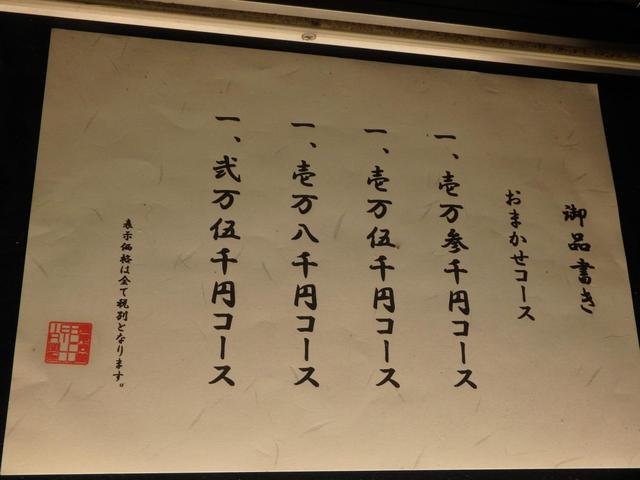 御品書き
おまかせコース
一、壱万参千円コース
一、壱万伍千円コース
一、壱万八千円コース
一、弐万伍千円コース
表示価格は全て税別となります。